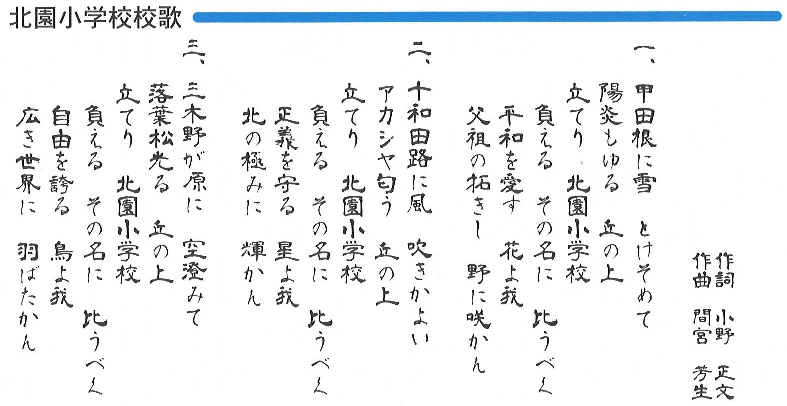 北園小学校校歌
作詞 小野 正文
作曲 間宮 芳生
一、甲田根に雪 とけそめて
陽炎もゆる 丘の上
立てり 北園小学校
負える その名に 比うべく
平和を愛す 花よ我
父祖の拓きし 野に咲かん
二、十和田路に風 吹きかよい
アカシヤ匂う 丘の上
立てり 北園小学校
負える その名に 比うべく
正義を守る 星よ我
北の極みに 輝かん
三、三木野が原に 空澄みて
落葉松光る 丘の上
立てり 北園小学校
負える その名に 比うべく
自由を誇る 鳥よ我
広き世界に 羽ばたかん